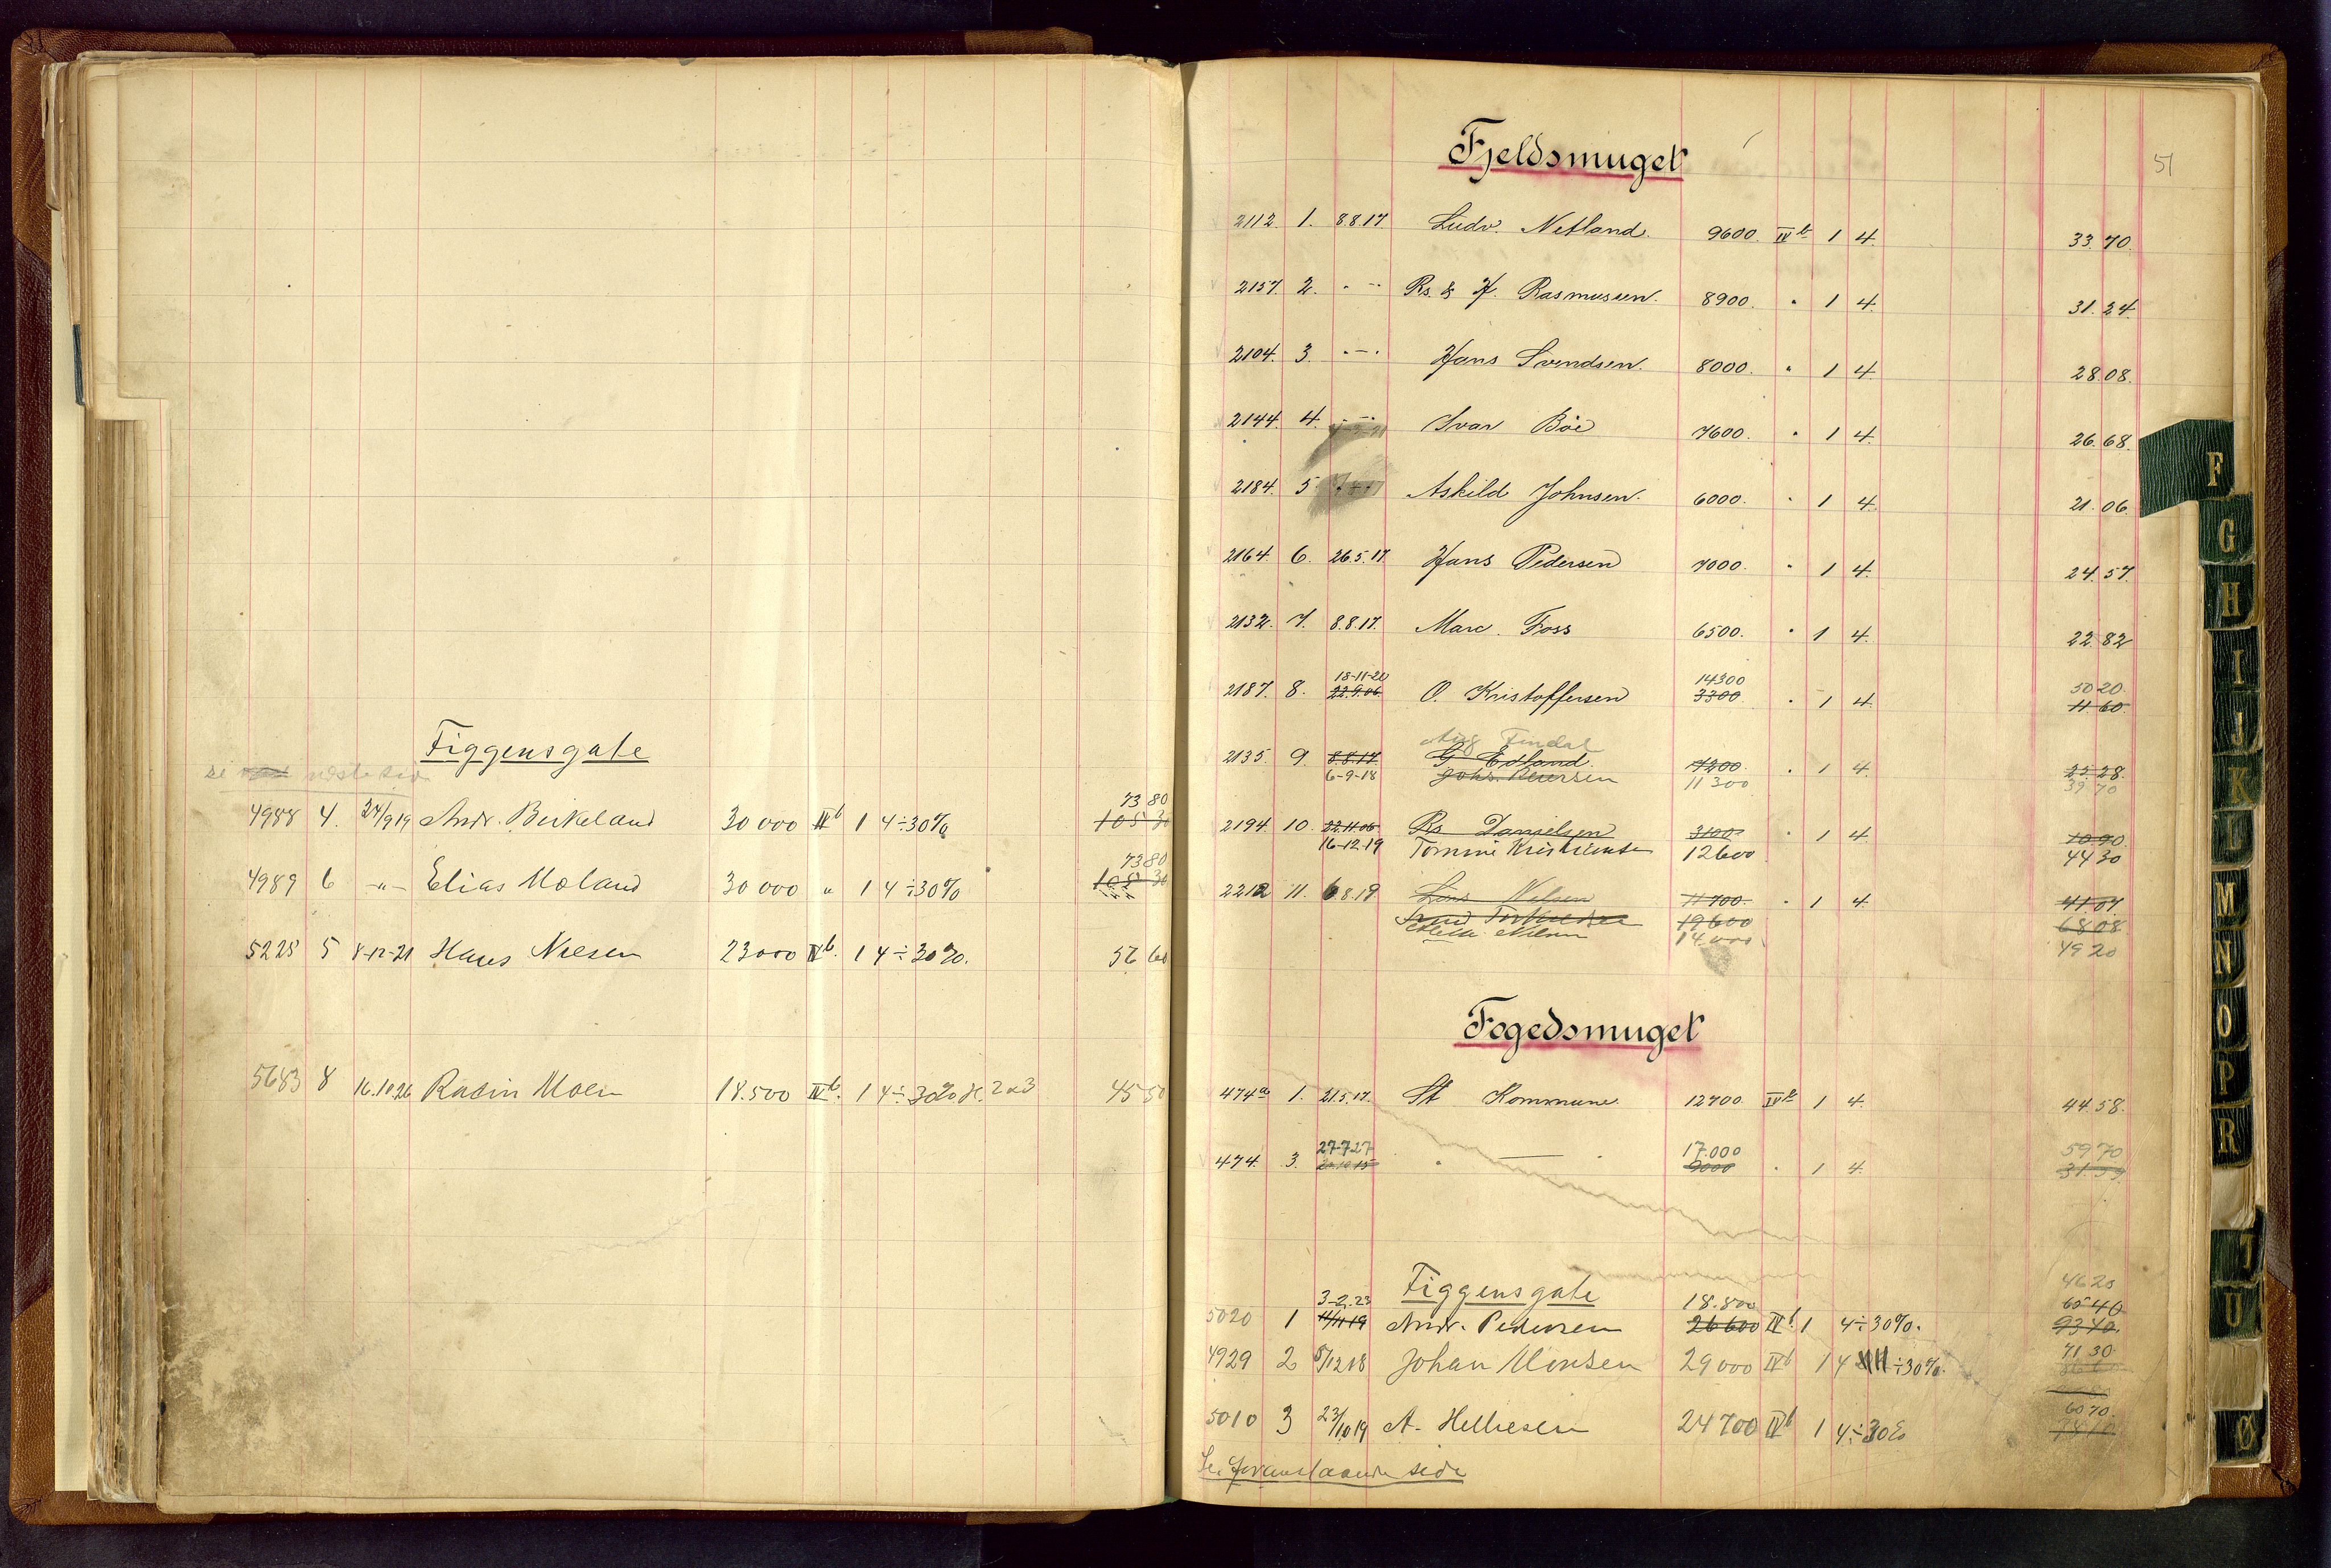 Figgensgate
se neste side
4988 4. 24/9 19 Andr. Birkeland 30 000 IVb 1 4÷30% 73 80
105 30
4989 6 -"- Elias Moland 30 000 " 1 4÷30% 73 80
105 30
5225 5 8-12-21 Hans Nilsen 23000 IVb. 1 4÷30%. 56 60
5683 8 16.10.26 Rasin Moen 18.500 IVb. 1 4÷30% 2 x 3 45 50
51
Fjeldsmuget
2112 1. 8.8.17 Ludv. Netland. 9600. IVb 1 4. 33.70.
2157. 2. " — " Rs. & H. Rasmussen. 8900. " 1 4. 31.24.
2104. 3. " — " Hans Svendsen. 8000. " 1 4. 28.08.
2144. 4. " — " Ivar Böe 7600. " 1 4. 26.68.
2184. 5 Askild Johnsen. 6000. " 1 4. 21.06.
2164. 6. 26.5.17 Hans Pedersen 7000. " 1 4. 24.57.
2132. 7. 8.8.17. Marc. Foss 6500. " 1 4. 22.82
18-11-20 14300 50 20
2187. 8. 22.9.06 O. Kristoffersen 3300 " 1 4. 11.60.
Aug Tendal
2135. 9. 8.8.17. G Edland. 7200. " 1 4. 25.28.
6-9-18 Johs. Iversen 11 300 39 70
2194. 10. 22.11.06 Rs. Danielsen 3100 " 1 4. 10.90.
16-12.19 Tomine Kristiense 12600 44 30
2212 11. 6.8.19. Lars Nelsen 11700. " 1 4. 41.07.
19600 68 08
14000 49 20
Fogedsmuget
474a 1. 21.5.17. St Kommune 12700. IVb 1 4. 44.58.
27-7.27 17.000 59 70
474. 3. 22.10.15 " — " 9000 " 1 4. 31.59
Figgensgate
3-2.23 18.800 46 20
65 40
5020 1 11/11 19 Andr. Pedersen 26600 IVb. 1 4÷30%. 93 40.
4929 2 5/12 18 Johan Monsen 29000 IVb 1 4 ÷30%. 71 30
5010 3 23/10 19 A. Helliesen 24700 IVb 1 4÷30% 60 70.
Se foranstaaende side
F
G
H
I
J
K
L
M
N
O
P
R
T
U
Ø